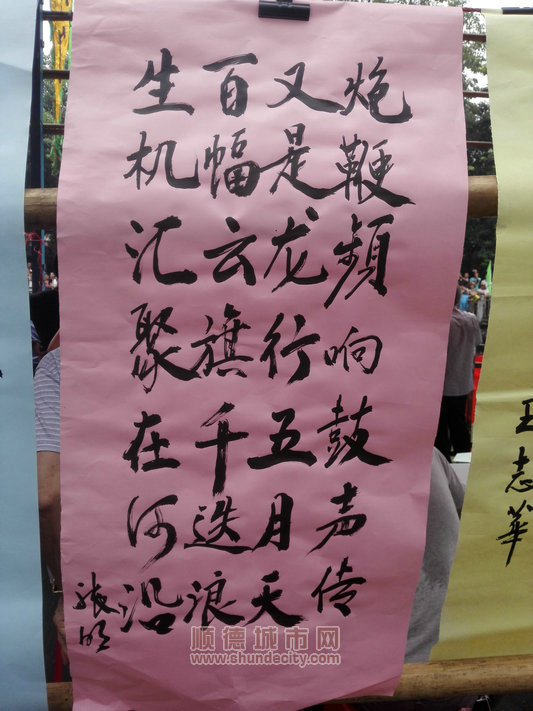 炮鞭频响鼓声传
又是龙行五月天
百幅云旗千迭浪
生机汇聚在河沿
张明
王志華
顺德城市网
www.shundacity.com